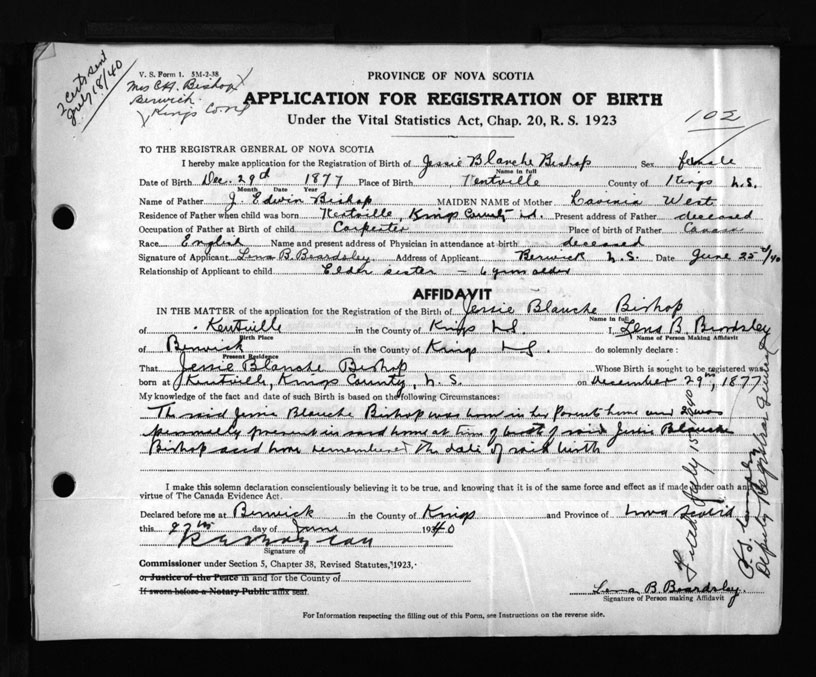 2 Certs sent
July 18/40
V. S. Form 1. 5M-2-38
Mrs C.H. Bishop
Berwick
Kings Co. N.S
PROVINCE OF NOVA SCOTIA
APPLICATION FOR REGISTRATION OF BIRTH
Under the Vital Statistics Act, Chap. 20, R. S. 1923
102
TO THE REGISTRAR GENERAL OF NOVA SCOTIA
I hereby make application for the Registration of Birth of Jessie Blanche Bishop, Sex female
Name in full
Date of Birth Dec. 29d 1877 Place of Birth, Kentville County of Kings N.S.
Month Date Year
Name of Father J. Edwin Bishop MAIDEN NAME of Mother Lavinia West
Residence of Father when child was born Kentville, Kings County Present address of Father deceased
Occupation of Father at Birth of child Carpenter Place of birth of Father
Race English Name and present address of Physician in attendance at birth deceased
Signature of Applicant Lena B. Beardsley Address of Applicant Berwick N.S. Date June 25 /40
Relationship of Applicant to child Elder sister — 6 years older
AFFIDAVIT
IN THE MATTER of the application for the Registration of the Birth of Jessie Blanche Bishop
Name in full
of Kentville in the County of Kings N.S. I, Lena B. Beardsley
Birth Place Name of Person Making Affidavit
of Berwick in the County of Kings N.S. do solemnly declare :
Present Residence
That Jessie Blanche Bishop Whose Birth is sought to be registered was
born at Kentville, Kings County, N. S. on December 29th, 1877
My knowledge of the fact and date of such Birth is based on the following Circumstances:
The said Jessie Blanche Bishop was born in her Parents home and I was
personally present in said home at time of birth of said Jessie Blanche
Bishop and have remembered the date of said birth
I make this solemn declaration conscientiously believing it to be true, and knowing that it is of the same force and effect as if made under oath and
virtue of The Canada Evidence Act.
Declared before me at Berwick in the County of Kings and Province of Nova Scotia
this 27th day of June 1940
Signature of
Commissioner under Section 5, Chapter 38, Revised Statutes, 1923,
or Justice of the Peace in and for the County of
If sworn before a Notary Public affix seal.
Lena B. Beardsley
Signature of Person making Affidavit
For Information respecting the filling out of this Form, see Instructions on the reverse side.
July 15
Deputy Registrar General